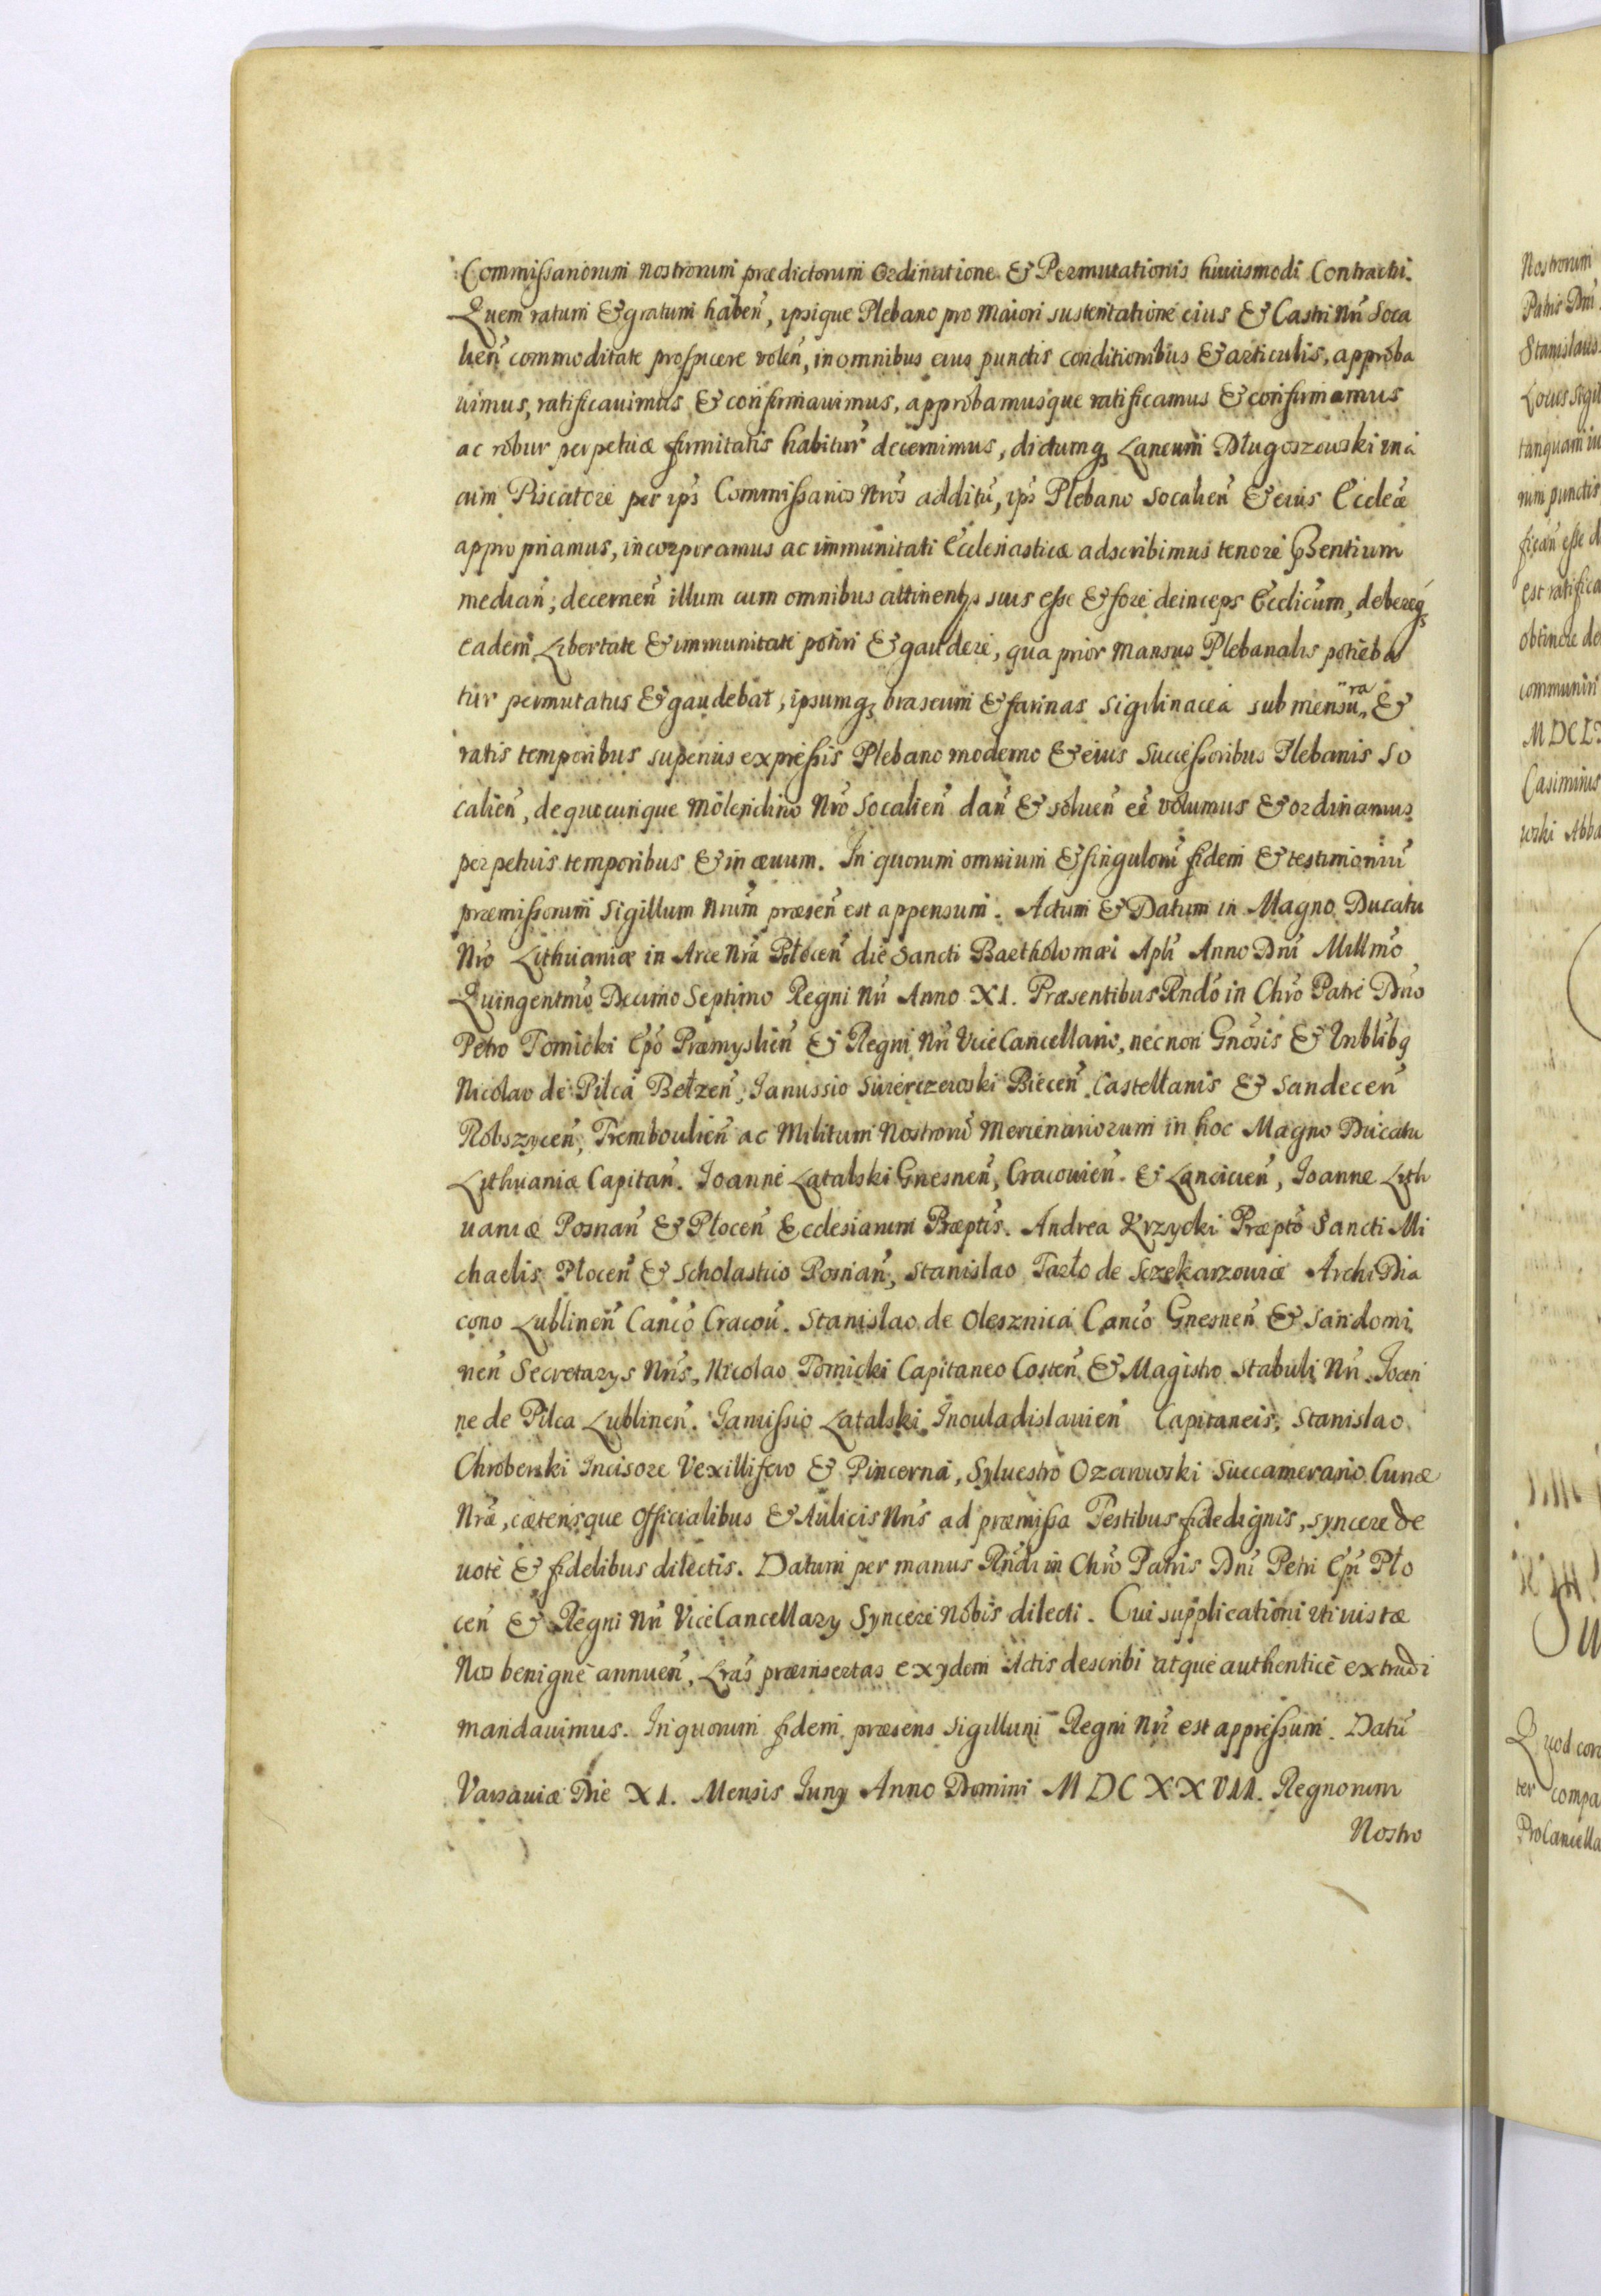 Commissariorum nostrorum prædictorum Ordinatione & Permutationis huiusmodi Contractu.
Quem ratum & gratum habeñ, ipsique Plebano pro maiori sustentatione eius & Castri Nrĩ Soca
lieñ commoditate prospicere voleñ, in omnibus eius punctis conditionibus & articulis, approba
uimus, ratificauimus & confirmauimus, approbamusque ratificamus & confirmamus
ac robur perpetuæ firmitatis habitur̃ decernimus, dictumq₃ Laneum Długoszowski vná
cum Piscatore per ip̃s Commissarios Nrõs additũ, ip̃s Plebano Socalieñ & eius Eccleæ
appropriamus, incorporamus ac immunitati Ecclesiasticæ adscribimus tenore p̃sentium
mediañ, decerneñ illum cum omnibus attinentijs suis esse & fore deinceps Ecclicum, debereq₃
eadem Libertate & immunitate potiri & gaudere, qua prior Mansus Plebanalis potieba
tur permutatus & gaudebat, ipsumq₃ braseum & farinas sigilinacea sub mensura &
ratis temporibus superius expressis Plebano moderno & eius Successoribus Plebanis So
calieñ, de quocunque molendino Nrõ Socalieñ dañ & solueñ eẽ volumus & ordinamus
perpetuis temporibus & in æuum. In quorum omnium & singulorũ fidem & testimoniũ
præmissorum Sigillum Nrũm præseñ est appensum. Actum & Datum in Magno Ducatu
Nrõ Lithuaniæ in Arce Nrã Połoceñ die Sancti Bartholomæi Apli Anno Dnĩ Millmõ
Quingentmõ Decimo Septimo Regni Nrĩ Anno XI. Præsentibus Rndõ in Chrõ Patre Dnõ
Petro Tomicki Epõ Præmyslieñ & Regni Nrĩ ViceCancellario, necnon Gnõsis & Mnblibq
Nicolao de Pilca Bełzeñ, Janussio Swierczewski Bieceñ Castellanis & Sandeceñ
Robszyceñ, Tremboulieñ ac Militum Nostrorũ Mercinariorum in hoc Magno Ducatu
Lithuaniæ Capitañ. Joanne Latalski Gnesneñ, Cracouieñ. & Lancicieñ, Joanne Lith
uaniæ Posnañ & Płoceñ Ecclesiarum Præptis. Andrea Krzycki Præptõ Sancti Mi
chaelis Płoceñ & Scholastico Posnañ, Stanislao Tarło de Sczekarzouicæ ArchiDia
cono Lublineñ Cancõ Cracoũ. Stanislao de Olesznica Cancõ Gnesneñ & Sandomi
rieñ Secretarys Nrĩs, Nicolao Tomicki Capitaneo Costeñ & Magistro Stabuli Nrĩ. Joan
ne de Pilca Lublineñ. Janussio Latalski Jnouladislauieñ Capitaneis, Stanislao
Chroberski Incisore Vexillifero & Pincerna, Syluestro Ozarowski Succamerario Curiæ
Nræ, cæterisque Officialibus & Aulicis Nrĩs ad præmissa Testibus fidedignis, syncere de
uotè & fidelibus dilectis. Datum per manus Rñdi in Chrõ Patris Dnĩ Petri Epĩ Pło
ceñ & Regni Nrĩ ViceCancellary Syncere Nobis dilecti. Cui supplicationi vti iustæ
Nos benignè annueñ, Lrãs præinsertas exydem Actis describi atque authenticè extradi
mandauimus. In quorum fidem præsens Sigillum Regni Nrĩ est appressum. Datũ
Varsauiæ Die XI. Mensis Juny Anno Domini MDCXXVII. Regnorum
Nostro